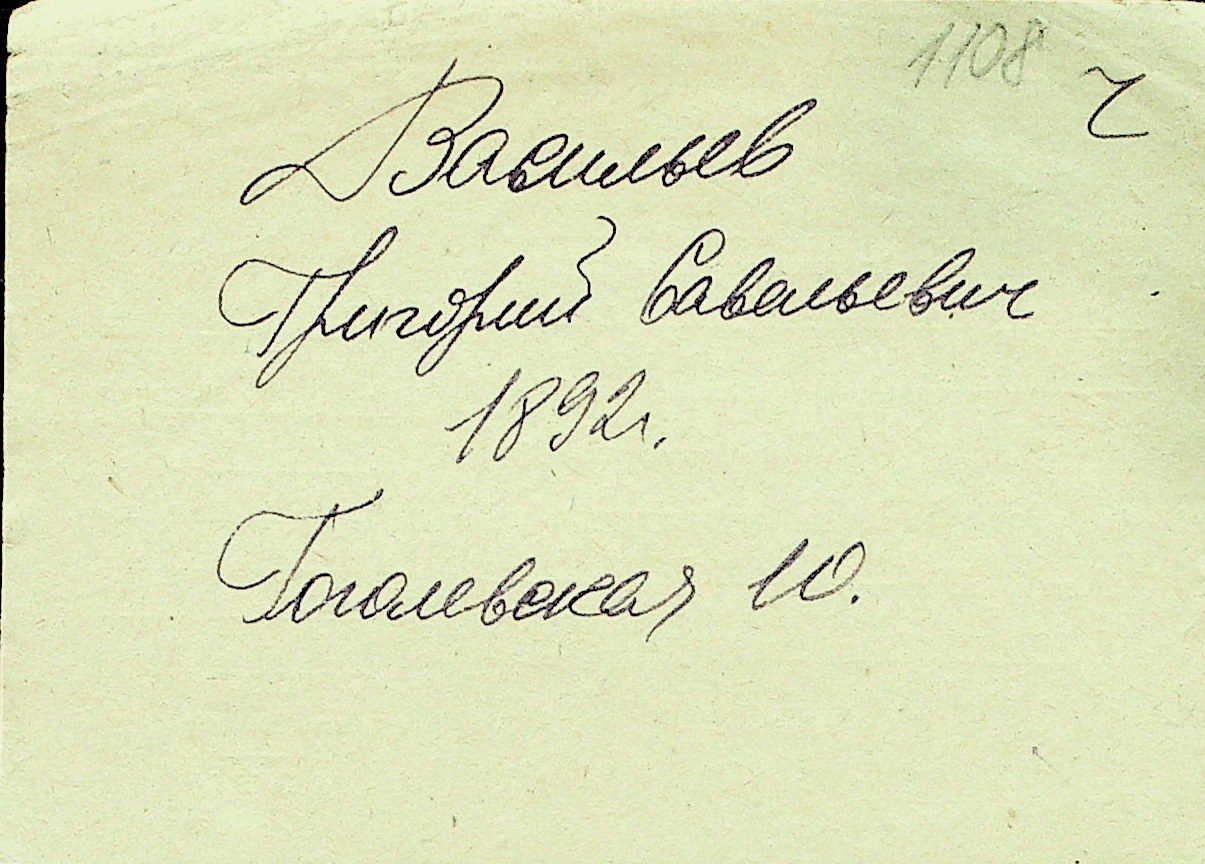 1108
Васильев
Григорий Савельевич
1892г.
Гоголевская 10.